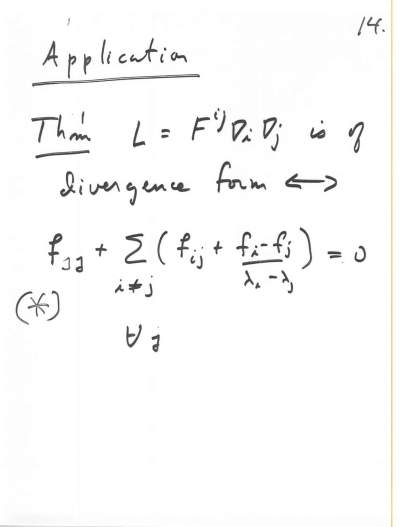 14.
Application
Thm L = F^{ij} ∇_i ∇_j is of
divergence form ↔
f_{jj} + Σ_{i≠j} ( f_{ij} + \frac{f_i - f_j}{λ_i - λ_j} ) = 0
(*)
∀ j